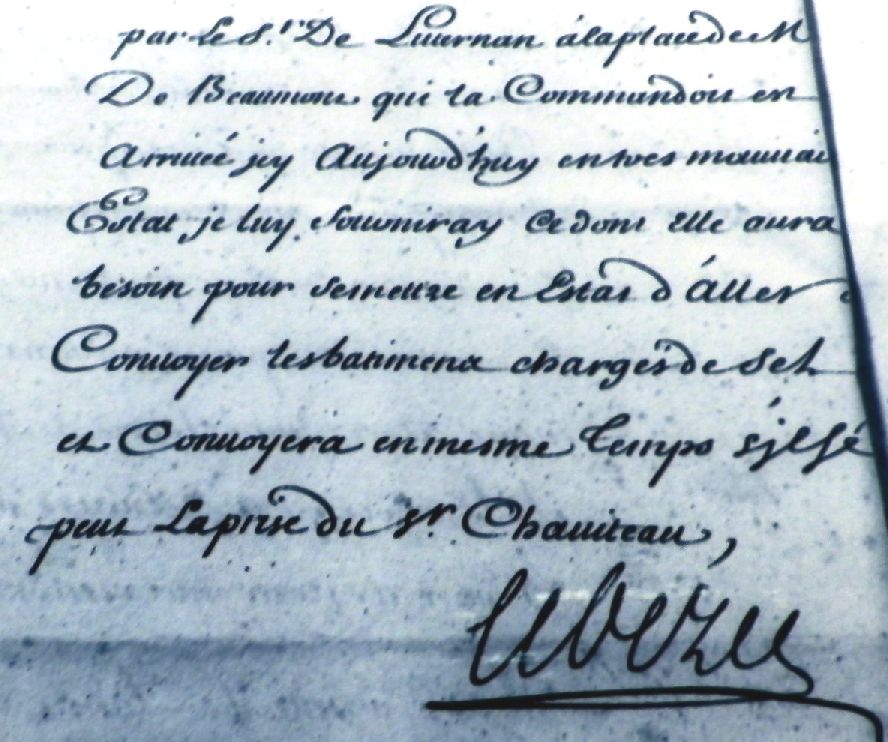 par le S.r De Luurnan alaplacede M
De Beaumont qui la Commandoit en
Arriueé jcy Aujourd'huy entres mauuai
Estat je luy fourniray ce dont Elle aura
besoin pour semettre en Estat d'Aller
Conuoyer lesbatimens chargés de Sel
et Conuoyera en mesme temps s'jl sé
peut Laprise du Sr Chauiteau,